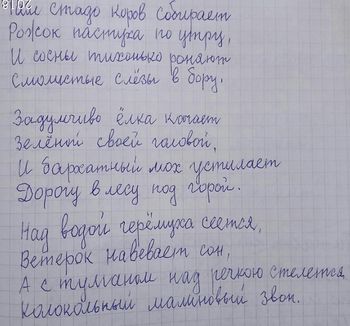 Там стадо коров собирает
Рожок пастуха по утру,
И сосны тихонько роняют
Смолистые слёзы в бору.
Задумчиво ёлка качает
Зелёной своей головой,
И бархатный мох устилает
Дорогу в лесу под горой.
Над водой черёмуха сеется,
Ветерок навевает сон,
А с туманом над речкою стелется
Колокольный малиновый звон.